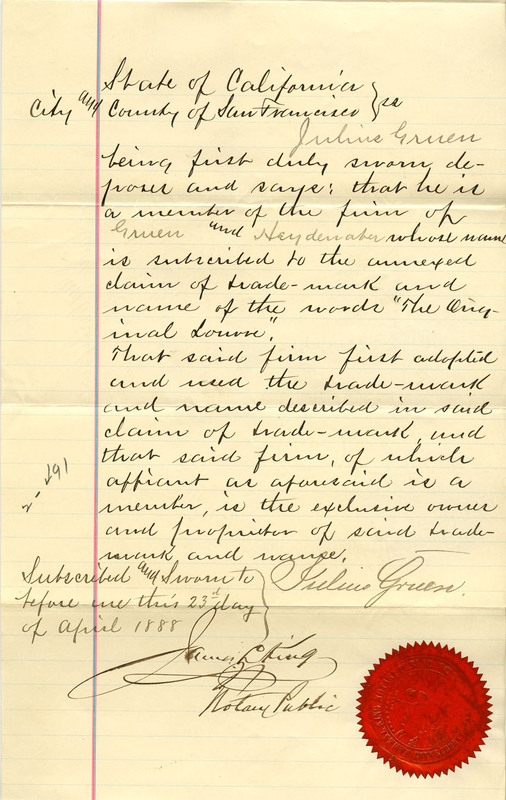 State of California
City and County of San Francisco } ss
Julius Gruen
being first duly sworn, de-
poses and says: that he is
a member of the firm of
Gruen and Heydenaber whose name
is subscribed to the annexed
claim of trade-mark and
name of the words "The Orig-
inal Louvre".
That said firm first adopted
and used the trade-mark
and name described in said
claim of trade-mark, and
that said firm, of which
affiant as aforesaid is a
member, is the exclusive owner
and proprietor of said trade-
mark and name.
Julius Gruen.
Subscribed and Sworn to
before me this 23rd day
of April 1888
James L. King
Notary Public